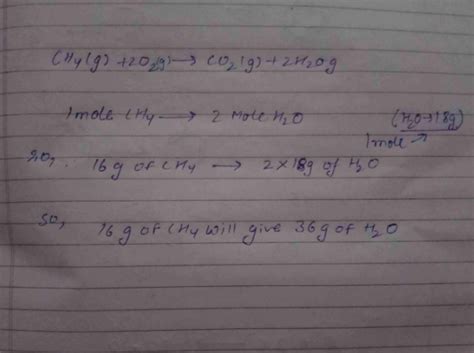 CH4(g) + 2O2(g) → CO2(g) + 2H2O g
1 mole CH4 → 2 Mole H2O (H2O → 18g)
1 mole
so, 16 g of CH4 → 2×18g of H2O
so, 16 g of CH4 will give 36g of H2O